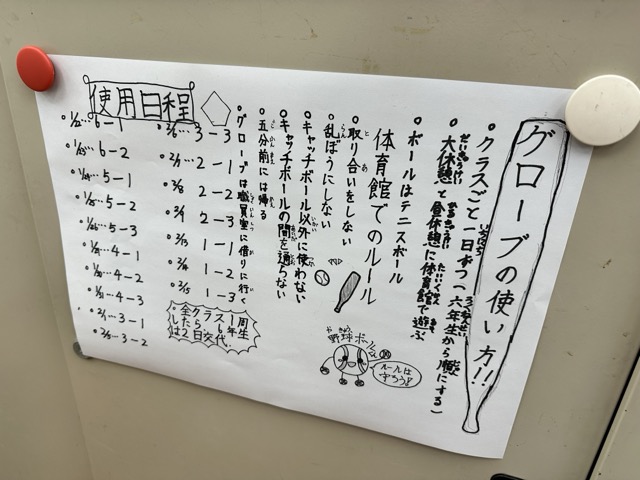 グローブの使い方!!
・クラスごと一日ずつ(六年生から順にする)
大休憩と昼休憩に体育館で遊ぶ
・ボールはテニスボール
体育館でのルール
・取り合いをしない
・乱ぼうにしない
・キャッチボール以外に使わない
・キャッチボールの間を通らない
・五分前には帰る
・グローブは職員室に借りに行く
野球ボールくん
ルールは
守ろう!
使用日程
・1/22… 6-1
・1/23… 6-2
・1/24… 5-1
・1/25… 5-2
・1/26… 5-3
・1/29… 4-1
・1/30… 4-2
・1/31… 4-3
・2/1… 3-1
・2/5… 3-2
・2/6… 3-3
・2/7… 2-1
・2/8 2-2
・2/9 2-3
・2/13 1-1
・2/14 1-2
・2/15 1-3
全クラス1周
したら6年生
は2日交代.